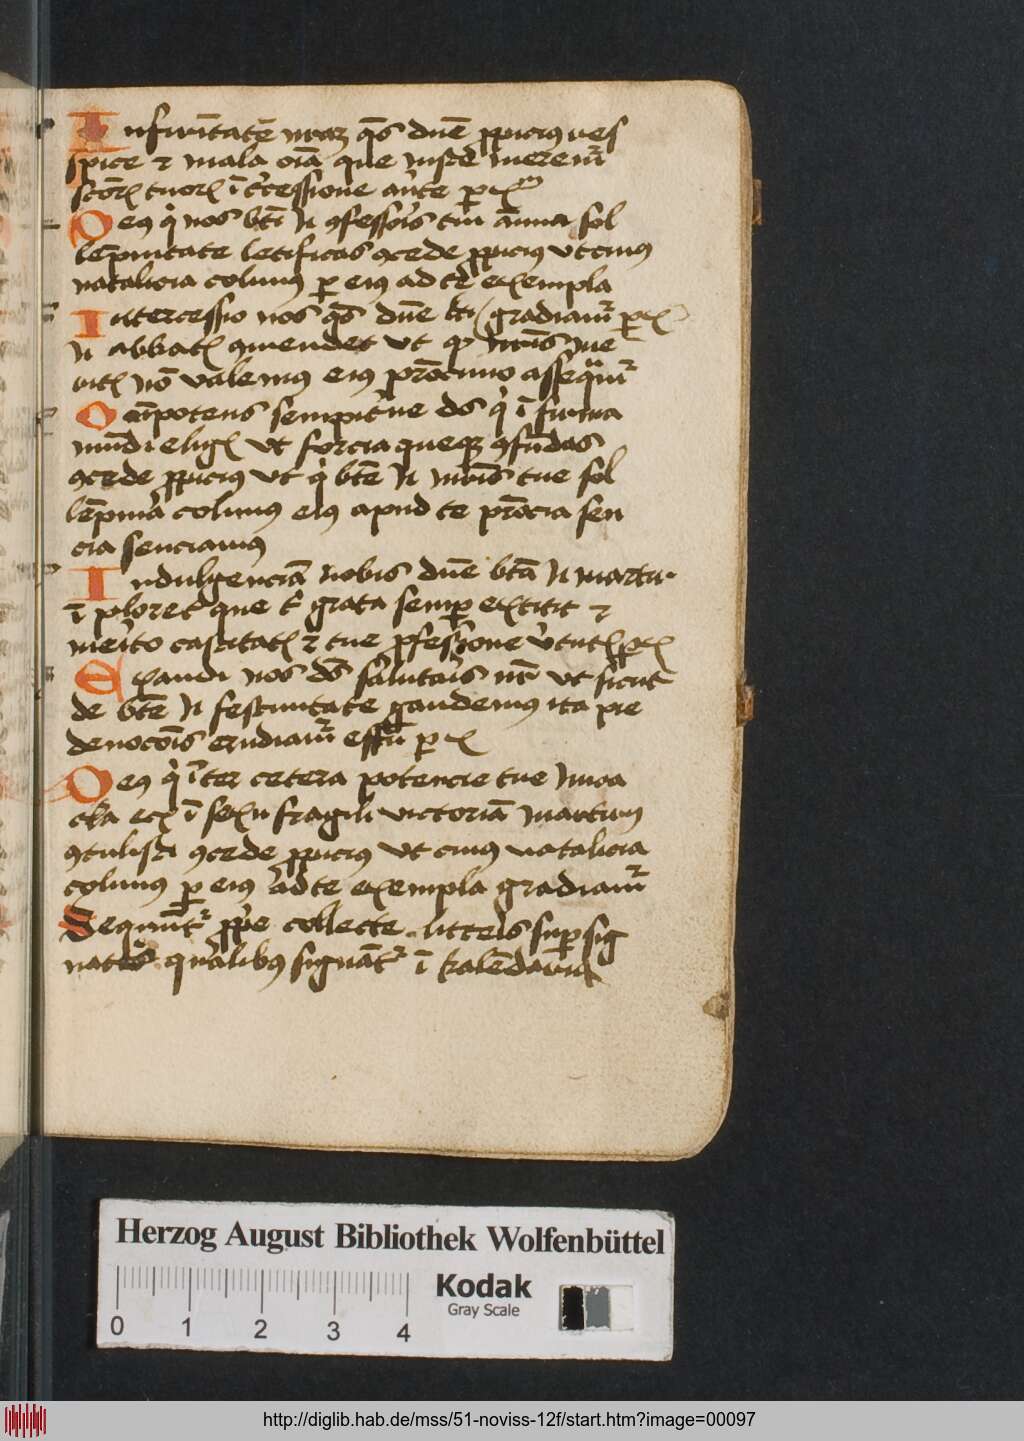 Infirmitatē nrāȝ qs̄ dnē ppicius res
spice ⁊ mala oīa que iuste meremr̄
scōꝝ tuoꝝ īt'cessione au'te p x
Deus q nos bti N ꝯfessoris tui ānua sol
lēpnitate letificas ꝯcede ppicius ut cuius
natalicia colimus p eius ad te exempla
Intercessio nos qs̄ dnē bti gradiamr̄ p x
N abbatis ꝯmendet ut qd nr̄is me
ritis nō valemus eius pr̄ocinio assequamr̄
Omīpotens sempit'ne ds q īfirma
mūdi eligis ut forcia queqȝ ꝯfūdas
ꝯcede ppicius ut q btē N mr̄is tue sol
lēpnia colimus eius apud te pr̄ocia sen
cia senciamus
Indulgenciā nobis dnē btā N martir
īploret que t' grata semp extitit ⁊
merito castitatis ⁊ tue pfessione v'tutis p x
Exaudi nos ds salutaris nr̄ ut sicut
de btē N festiuitate gaudemus ita pie
deuocōis erudiamr̄ effcū p x
Deus q īter cetera potencie tue mira
cla eciā ī sexu fragili victoriā martirii
ꝯtulisti ꝯcede ppicius ut cuius natalicia
colimus p eius ad te exempla gradiamr̄
Sequūtr ppe collecte litteris sup sig
natis qualibus signātr ī kalēdariu
Herzog August Bibliothek Wolfenbüttel
Kodak
Gray Scale
0 1 2 3 4
http://diglib.hab.de/mss/51-noviss-12f/start.htm?image=00097